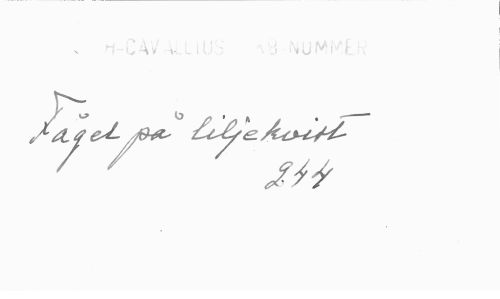 H-CAVALLIUS KB-NUMMER
Fågel på liljekvist
244